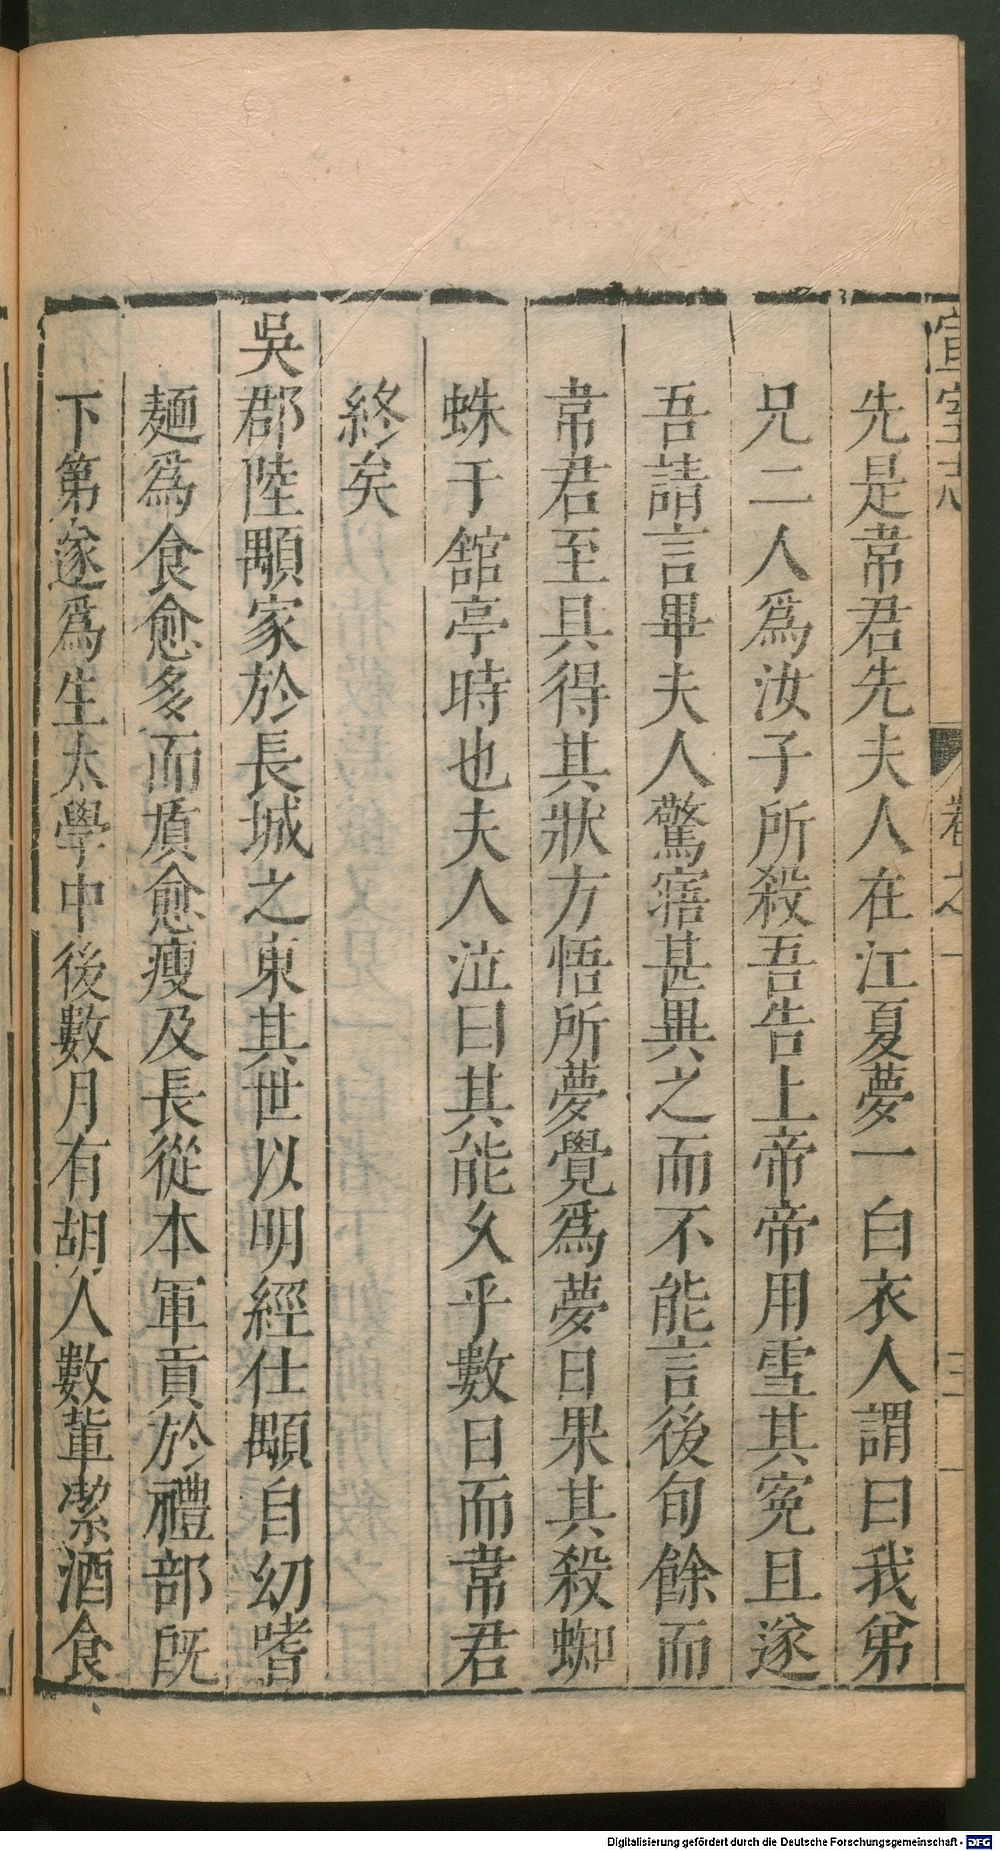 宣室志 卷之一 三
先是韋君先夫人在江夏夢一白衣人謂曰我弟
兄二人爲汝子所殺吾告上帝帝用雪其寃且遂
吾請言畢夫人驚寤甚異之而不能言後旬餘而
韋君至具得其狀方悟所夢覺爲夢日果其殺蜘
蛛于館亭時也夫人泣曰其能久乎數日而韋君
終矣
吳郡陸顒家於長城之東其世以明經仕顒自幼嗜
麵爲食愈多而質愈瘦及長從本軍貢於禮部旣
下第遂爲生太學中後數月有胡人數輩潔酒食
Digitalisierung gefördert durch die Deutsche Forschungsgemeinschaft - DFG